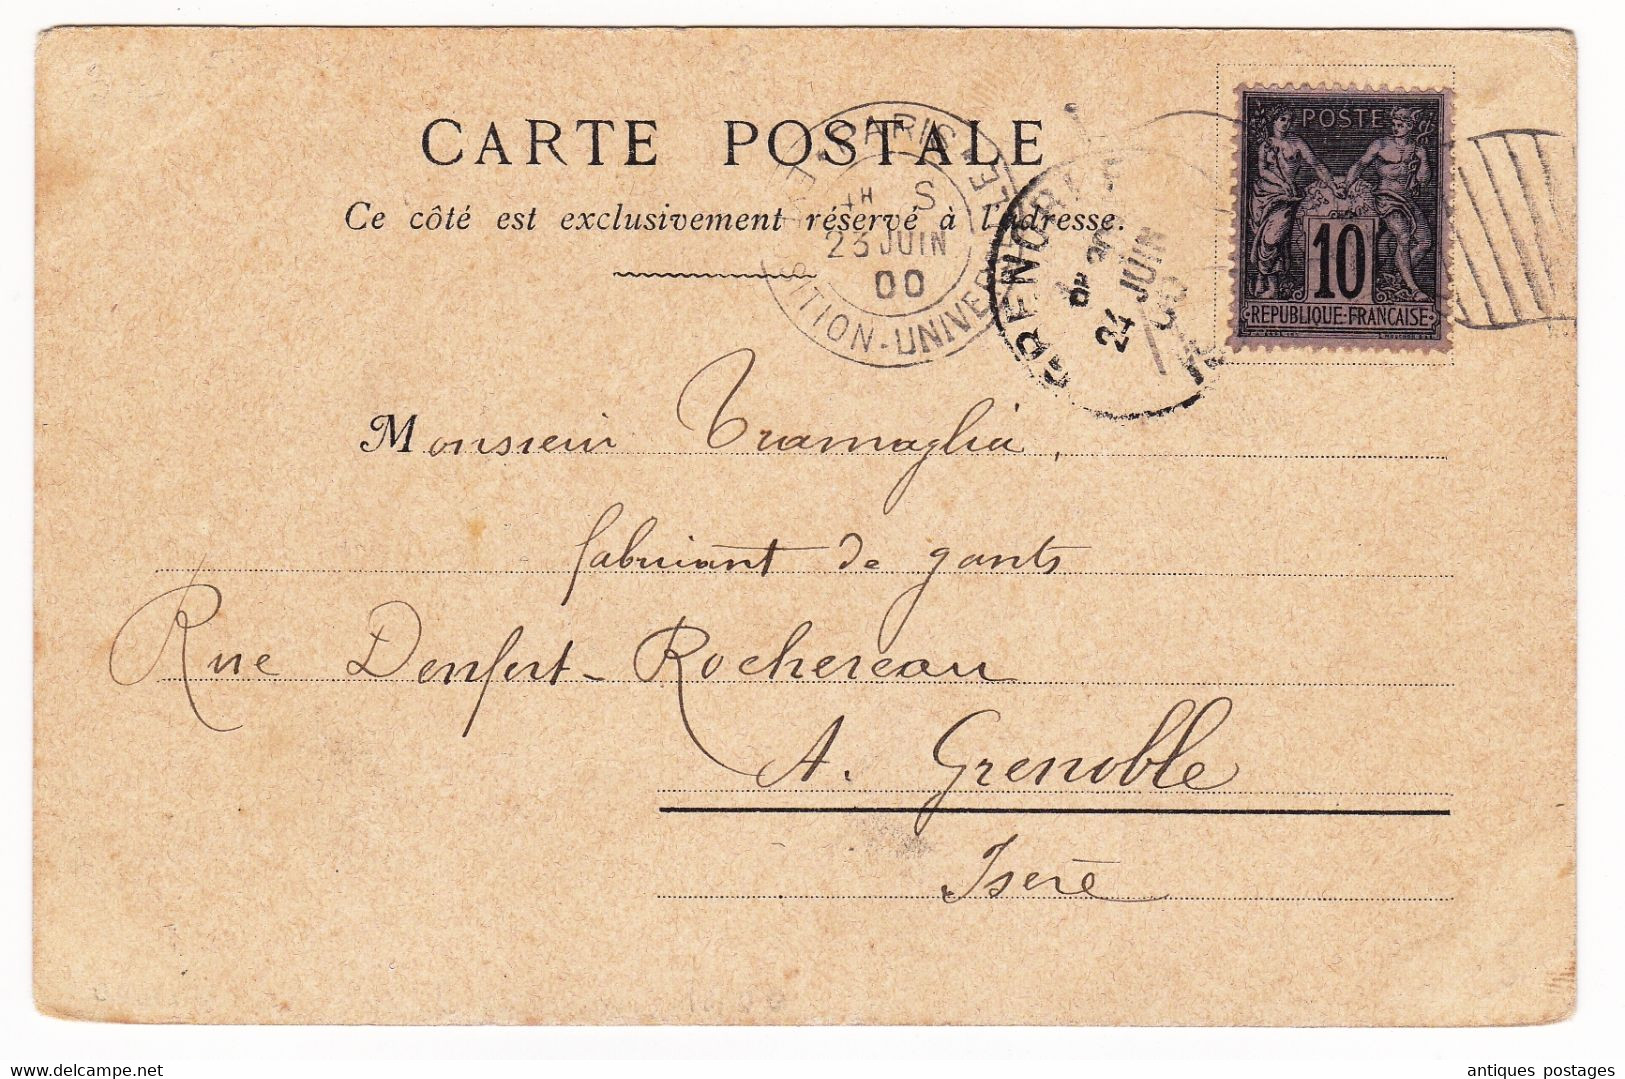 CARTE POSTALE
Ce côté est exclusivement réservé à l'adresse.
PARIS
EXPOSITION-UNIVERSELLE
S
23 JUIN
00
GRENOBLE
24 JUIN
00
POSTE
10
REPUBLIQUE·FRANCAISE
Monsieur Tramaglia,
fabricant de gants
Rue Denfert-Rochereau
A. Grenoble
Isère
antiques postages